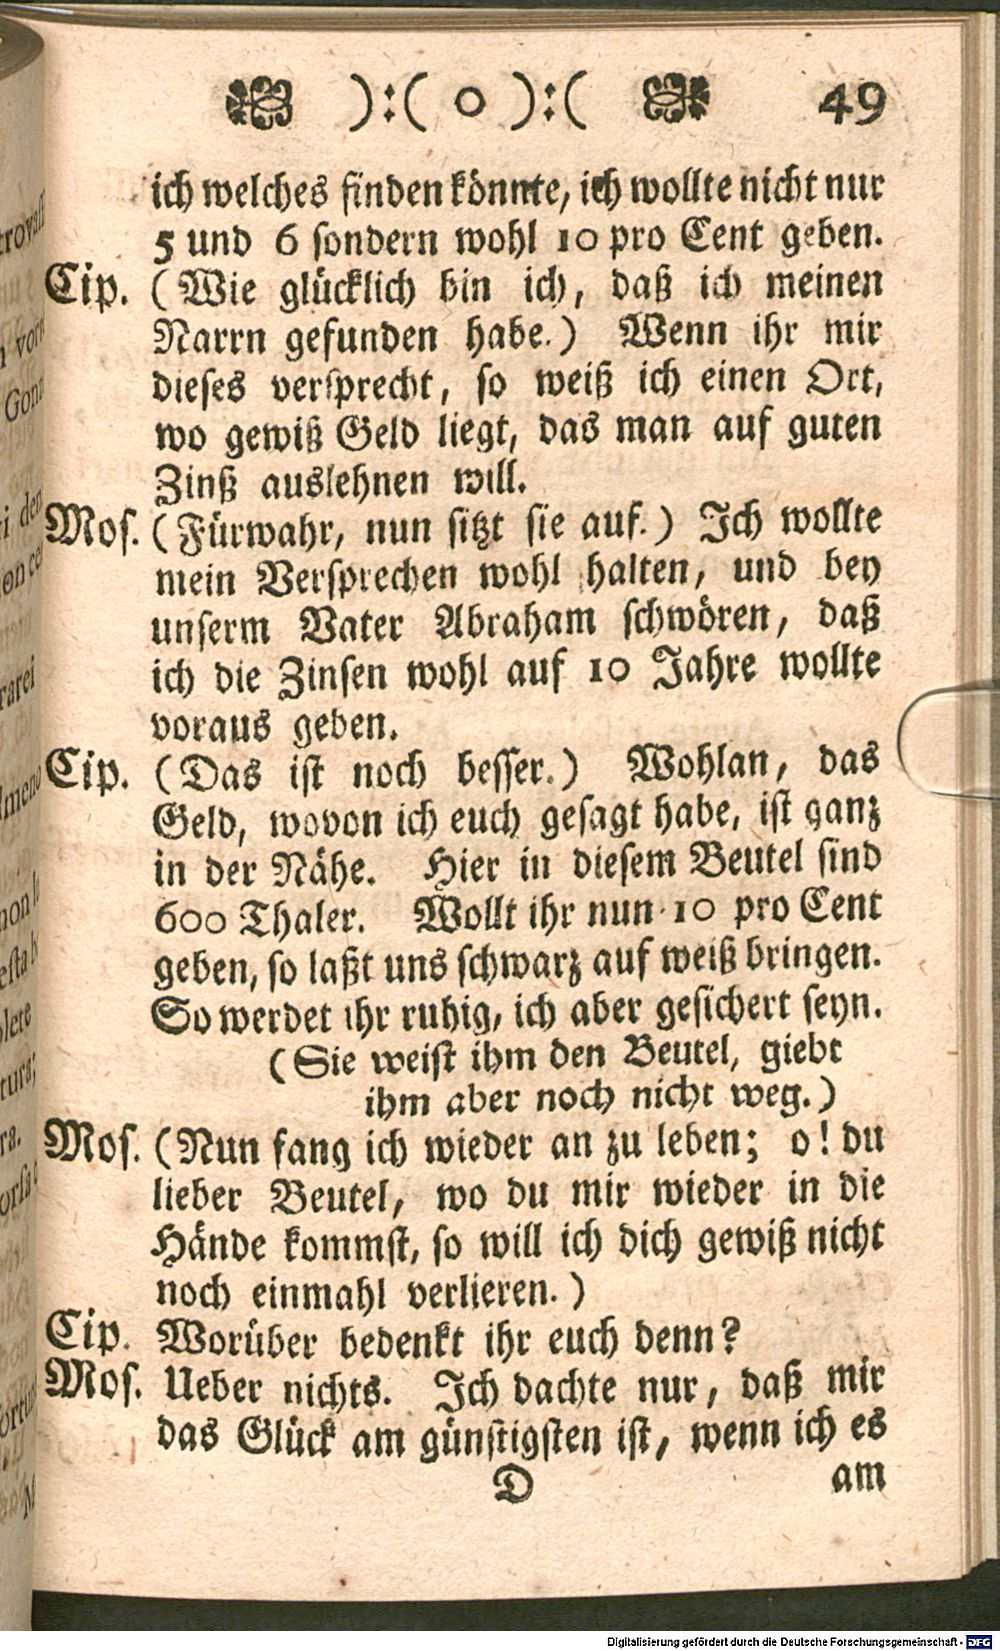 ):( o ):( 49
ich welches finden könnte, ich wollte nicht nur
5 und 6 sondern wohl 10 pro Cent geben.
Cip. (Wie glücklich bin ich, daß ich meinen
Narrn gefunden habe.) Wenn ihr mir
dieses versprecht, so weiß ich einen Ort,
wo gewiß Geld liegt, das man auf guten
Zinß auslehnen will.
Mos. (Fürwahr, nun sitzt sie auf.) Ich wollte
mein Versprechen wohl halten, und bey
unserm Vater Abraham schwören, daß
ich die Zinsen wohl auf 10 Jahre wollte
voraus geben.
Cip. (Das ist noch besser.) Wohlan, das
Geld, wovon ich euch gesagt habe, ist ganz
in der Nähe. Hier in diesem Beutel sind
600 Thaler. Wollt ihr nun 10 pro Cent
geben, so laßt uns schwarz auf weiß bringen.
So werdet ihr ruhig, ich aber gesichert seyn.
(Sie weist ihm den Beutel, giebt
ihm aber noch nicht weg.)
Mos. (Nun fang ich wieder an zu leben; o! du
lieber Beutel, wo du mir wieder in die
Hände kommst, so will ich dich gewiß nicht
noch einmahl verlieren.)
Cip. Worüber bedenkt ihr euch denn?
Mos. Ueber nichts. Ich dachte nur, daß mir
das Glück am günstigsten ist, wenn ich es
D am
Digitalisierung gefördert durch die Deutsche Forschungsgemeinschaft - DFG